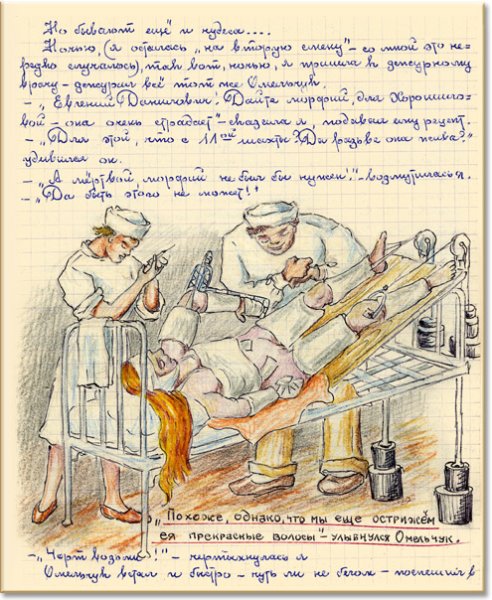 Но бывают ещё и чудеса....
Ночью, (я осталась „на вторую смену" – со мной это не-
редко случалось), так вот, ночью, я пришла к дежурному
врачу – дежурил всё тот же Омельчук.
– „Евгений Данилович! Дайте морфий, для Хорошило-
вой – она очень страдает" – сказала я, подавая ему рецепт.
– „Для этой, что с 11ой шахты? Да разве она жива?"
удивился он.
– „А мёртвой морфий не был бы нужен!" – возмутилась я.
– „Да быть этого не может!"
„Похоже, однако, что мы еще острижём
ея прекрасные волосы" – улыбнулся Омельчук.
– „Чёрт возьми!" – чертыхнулась я
Омельчук встал и быстро – чуть ли не бегом – поспешил в